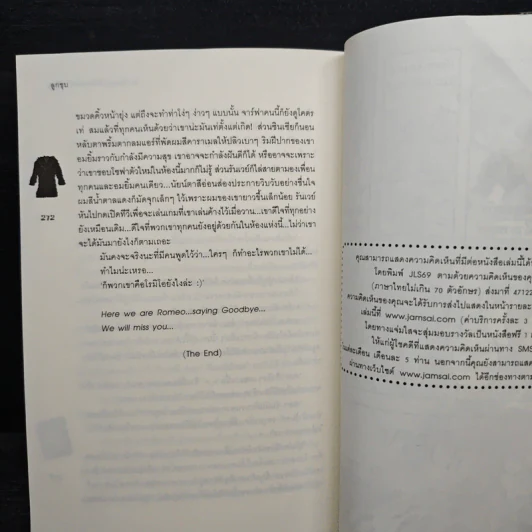 ลูกชุบ
ขมวดคิ้วหน้ายุ่ง แต่ถึงจะทำท่าโง่ๆ ง่าวๆ แบบนั้น จาร์ฟาคนนี้ก็ยังดูโคตร
เท่ สมแล้วที่ทุกคนเห็นด้วยว่าเขาน่ะมันเท่ตั้งแต่เกิด! ส่วนชินเชียก็นอน
หลับตาพริ้มตากลมแอร์ที่พัดผมสีคาราเมลให้ปลิวเบาๆ ริมฝีปากของเขา
อมยิ้มราวกับกำลังมีความสุข เขาอาจจะกำลังฝันดีก็ได้ หรืออาจจะเพราะ
ว่าเขาชอบโซฟาตัวใหม่ในห้องนี้มากก็ไม่รู้ ส่วนรันเวย์ก็ไล่สายตามองเพื่อน
ทุกคนและอมยิ้มคนเดียว... นัยน์ตาสีอ่อนส่องประกายวิบวับอย่างชื่นใจ
ผมสีน้ำตาลแดงก็มัดจุกเล็กๆ ไว้เพราะผมของเขายาวขึ้นเล็กน้อย รันเวย์
หันไปกดเปิดทีวีเพื่อจะเล่นเกมที่เขาเล่นค้างไว้เมื่อวาน...เขาดีใจที่ทุกอย่าง
ยังเหมือนเดิม...ดีใจที่พวกเขาทุกคนยังอยู่ด้วยกันในห้องแห่งนี้...ไม่ว่าเขา
จะได้มันมายังไงก็ตามเถอะ
212
มันคงจะจริงนะที่มีคนพูดไว้ว่า...ใครๆ ก็ทำอะไรพวกเขาไม่ได้...
ทำไมน่ะเหรอ...
'ก็พวกเขาคือโรมิโอยังไงล่ะ :)'
Here we are Romeo...saying Goodbye...
We will miss you...
(The End)
คุณสามารถแสดงความคิดเห็นที่มีต่อหนังสือเล่มนี้ได้
โดยพิมพ์ JLS69 ตามด้วยความคิดเห็นของคุ
(ภาษาไทยไม่เกิน 70 ตัวอักษร) ส่งมาที่ 47122
ความคิดเห็นของคุณจะได้รับการส่งไปแสดงในหน้ารายละ
เล่มนี้ที่ www.jamsai.com (ค่าบริการครั้งละ 3
โดยทางแจ่มใสจะสุ่มมอบรางวัลเป็นหนังสือฟรี 1
ให้แก่ผู้โชคดีที่แสดงความคิดเห็นผ่านทาง SMS
แต่ละเดือน เดือนละ 5 ท่าน นอกจากนี้คุณยังสามารถแสด
ผ่านทางเว็บไซต์ www.jamsai.com ได้อีกช่องทางตาม